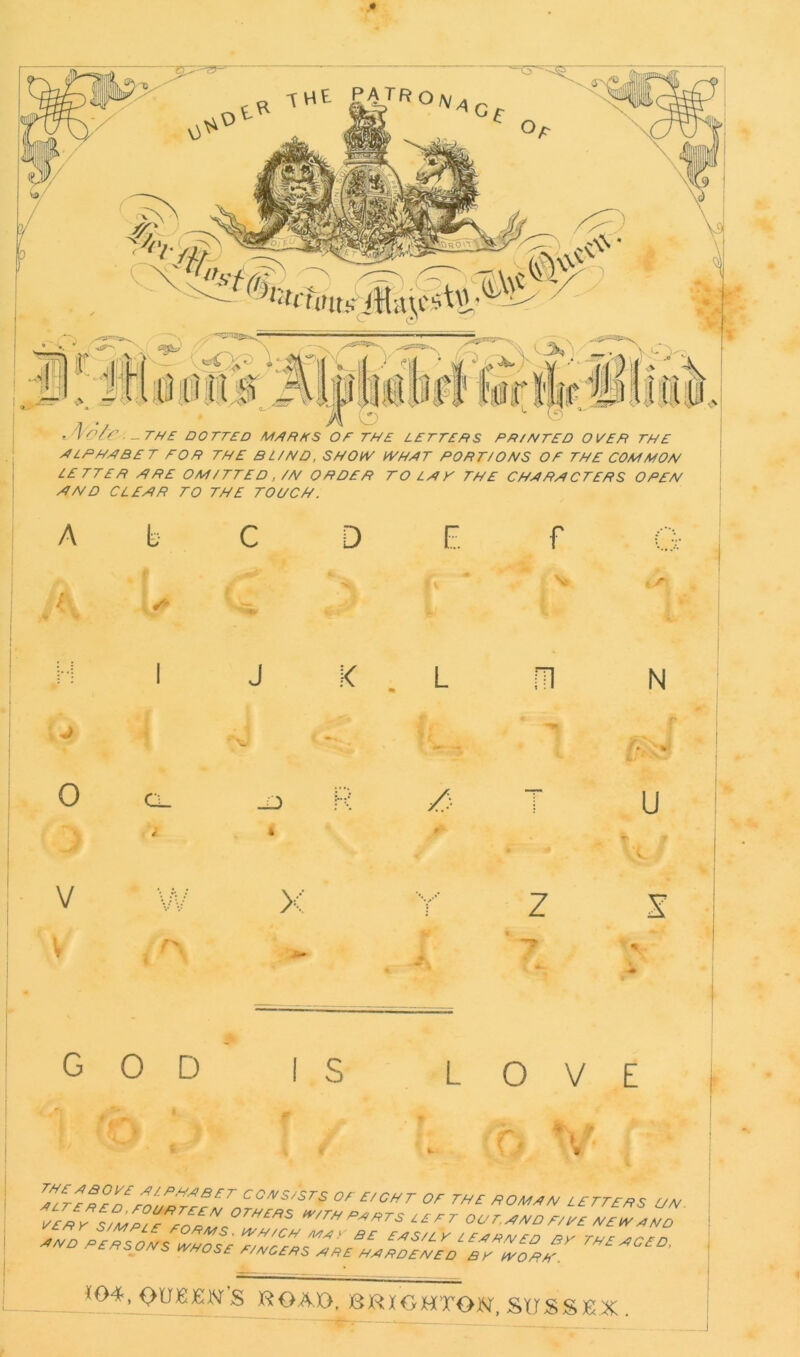 UNDER THE PATRONAGE OF
DIEU ET DROIT
Her Most Gracious Majesty, The Queen.
Dr. Moon's Alphabet for the Blind.
Note. _ THE DOTTED MARKS OF THE LETTERS PRINTED OVER THE
ALPHABET FOR THE BLIND, SHOW WHAT PORTIONS OF THE COMMON
LETTER ARE OMITTED, IN ORDER TO LAY THE CHARACTERS OPEN
AND CLEAR TO THE TOUCH.
A b C D E f G
H I J K L m N
O Q P R S T U
V W X Y Z &
GOD IS LOVE
THE ABOVE ALPHABET CONSISTS OF EIGHT OF THE ROMAN LETTERS UN
ALTERED, FOURTEEN OTHERS WITH PARTS LEFT OUT, AND FIVE NEW AND
VERY SIMPLE FORMS. WHICH MAY BE EASILY LEARNED BY THE AGED,
AND PERSONS WHOSE FINGERS ARE HARDENED BY WORK.
104, QUEEN'S ROAD, BRIGHTON, SUSSEX.